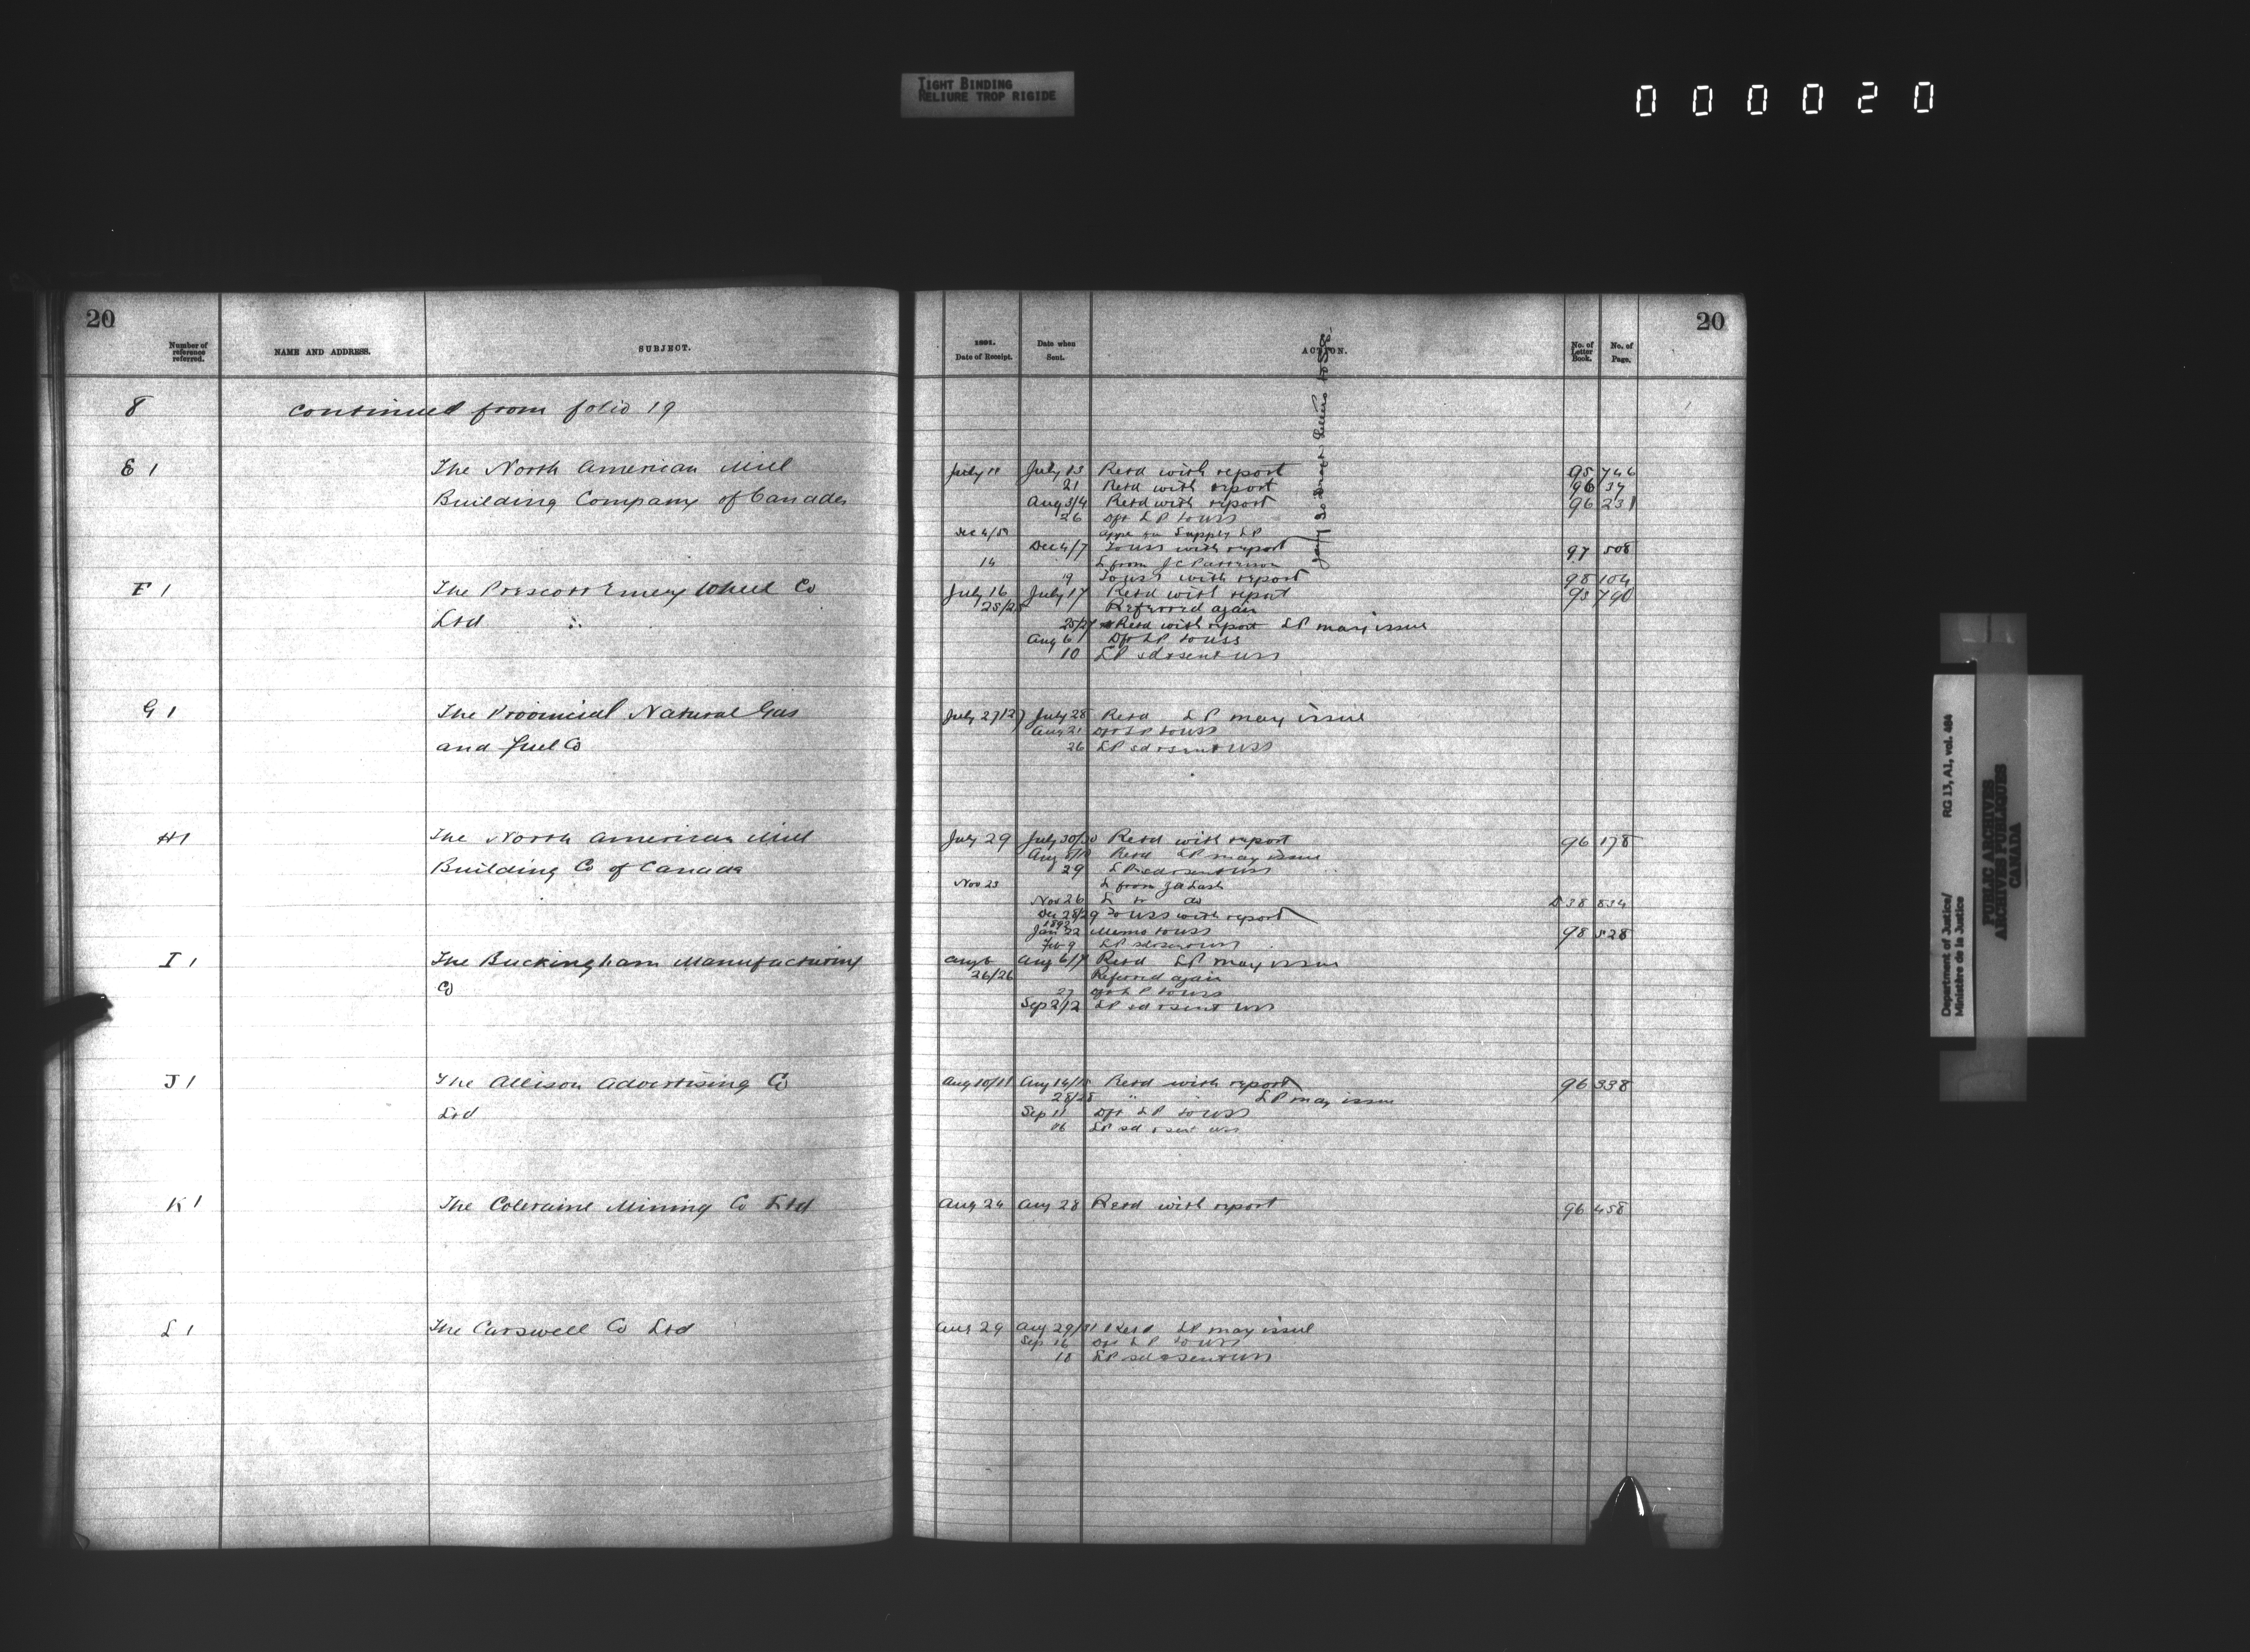 TIGHT BINDING
RELIURE TROP RIGIDE
000020
20
Number of reference referred.
NAME AND ADDRESS.
SUBJECT.
8 continued from folio 19
E 1 The North American Mill
Building Company of Canada
F 1 The Prescott Emery Wheel Co
Ltd
G 1 The Provincial Natural Gas
and fuel Co
H 1 The North American Mill
Building Co of Canada
I 1 The Buckingham Manufacturing
Co
J 1 The Allison Advertising Co
Ltd
K 1 The Coleraine Mining Co Ltd
L 1 The Carswell Co Ltd
20
1891.
Date of Receipt.
Date when Sent.
ACTION.
No. of Letter Book.
No. of Page.
July 11 July 13 Retd with report 95 746
21 Retd with report 96 37
Aug 3/4 Retd with report 96 231
26 Dft LP to USS
Dec 4/5 Appn for Supply LP
Dec 4/7 To USS with report 97 508
14 L from J C Patterson
19 To USS with report 98 104
July 16 July 17 Retd with report 95 790
25/25 Referred again
25/27 Retd with report LP may issue
Aug 6 Dft LP to USS
10 LP sd & sent USS
July 27/27 July 28 Retd LP may issue
Aug 21 Dft LP to USS
26 LP sd & sent USS
July 29 July 30/30 Retd with report 96 178
Retd LP may issue
29 LP sd & sent USS
Nov 23 L from
Nov 26 L to do D 38 834
Dec 28/29 To USS with report
1892
Jan 22 Memo to USS 98 528
Feb 9 LP sd & sent USS
Aug 6 Aug 6/7 Retd LP may issue
26/26 Referred again
27 Dft LP to USS
Sep 2/2 LP sd & sent USS
Aug 10/11 Aug 14/15 Retd with report 96 338
28/28 " " LP may issue
Sep 11 Dft LP to USS
16 LP sd & sent USS
Aug 24 Aug 28 Retd with report 96 458
Aug 29 Aug 29/31 Retd LP may issue
Sep 16 Dft LP to USS
18 LP sd & sent USS
Department of Justice/
Ministère de la Justice
RG 13, A1, vol. 464
PUBLIC ARCHIVES
ARCHIVES PUBLIQUES
CANADA